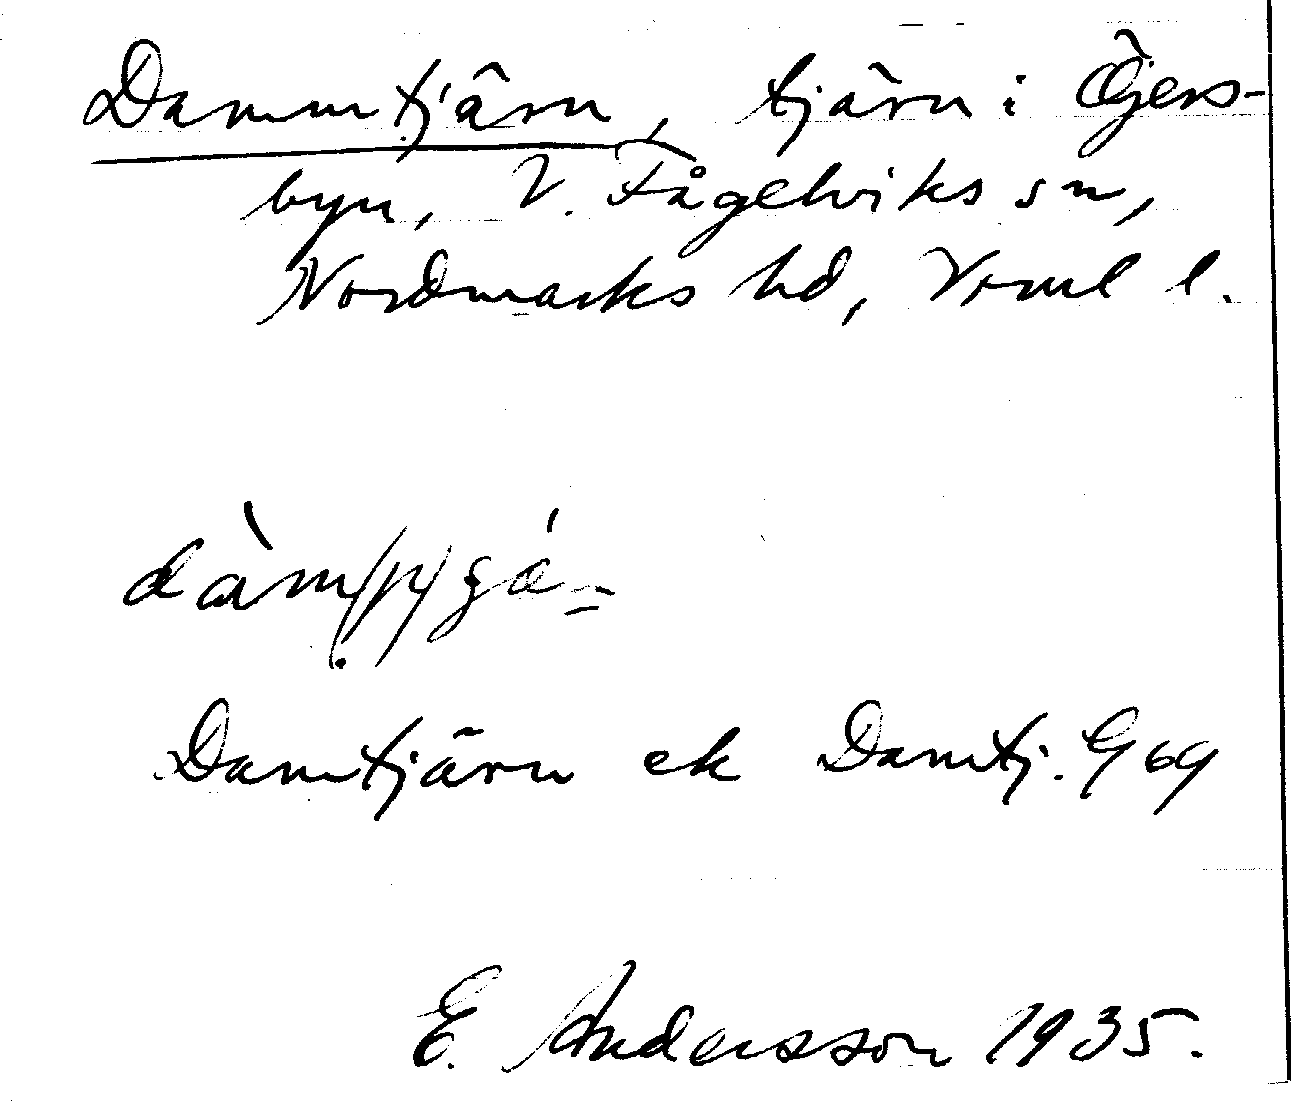 Dammtjärn, tjärn i Öjers-
byn, V. Fågelviks sn,
Nordmarks hd, Vrml l.
Damtjärn ek Damtj. G 69
E. Andersson 1935.